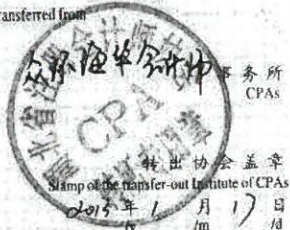 transferred from
众环海华会计师事务所
CPAs
CPA
转出协会盖章
Stamp of the transfer-out Institute of CPAs
2015年1月17日
/y /m /d